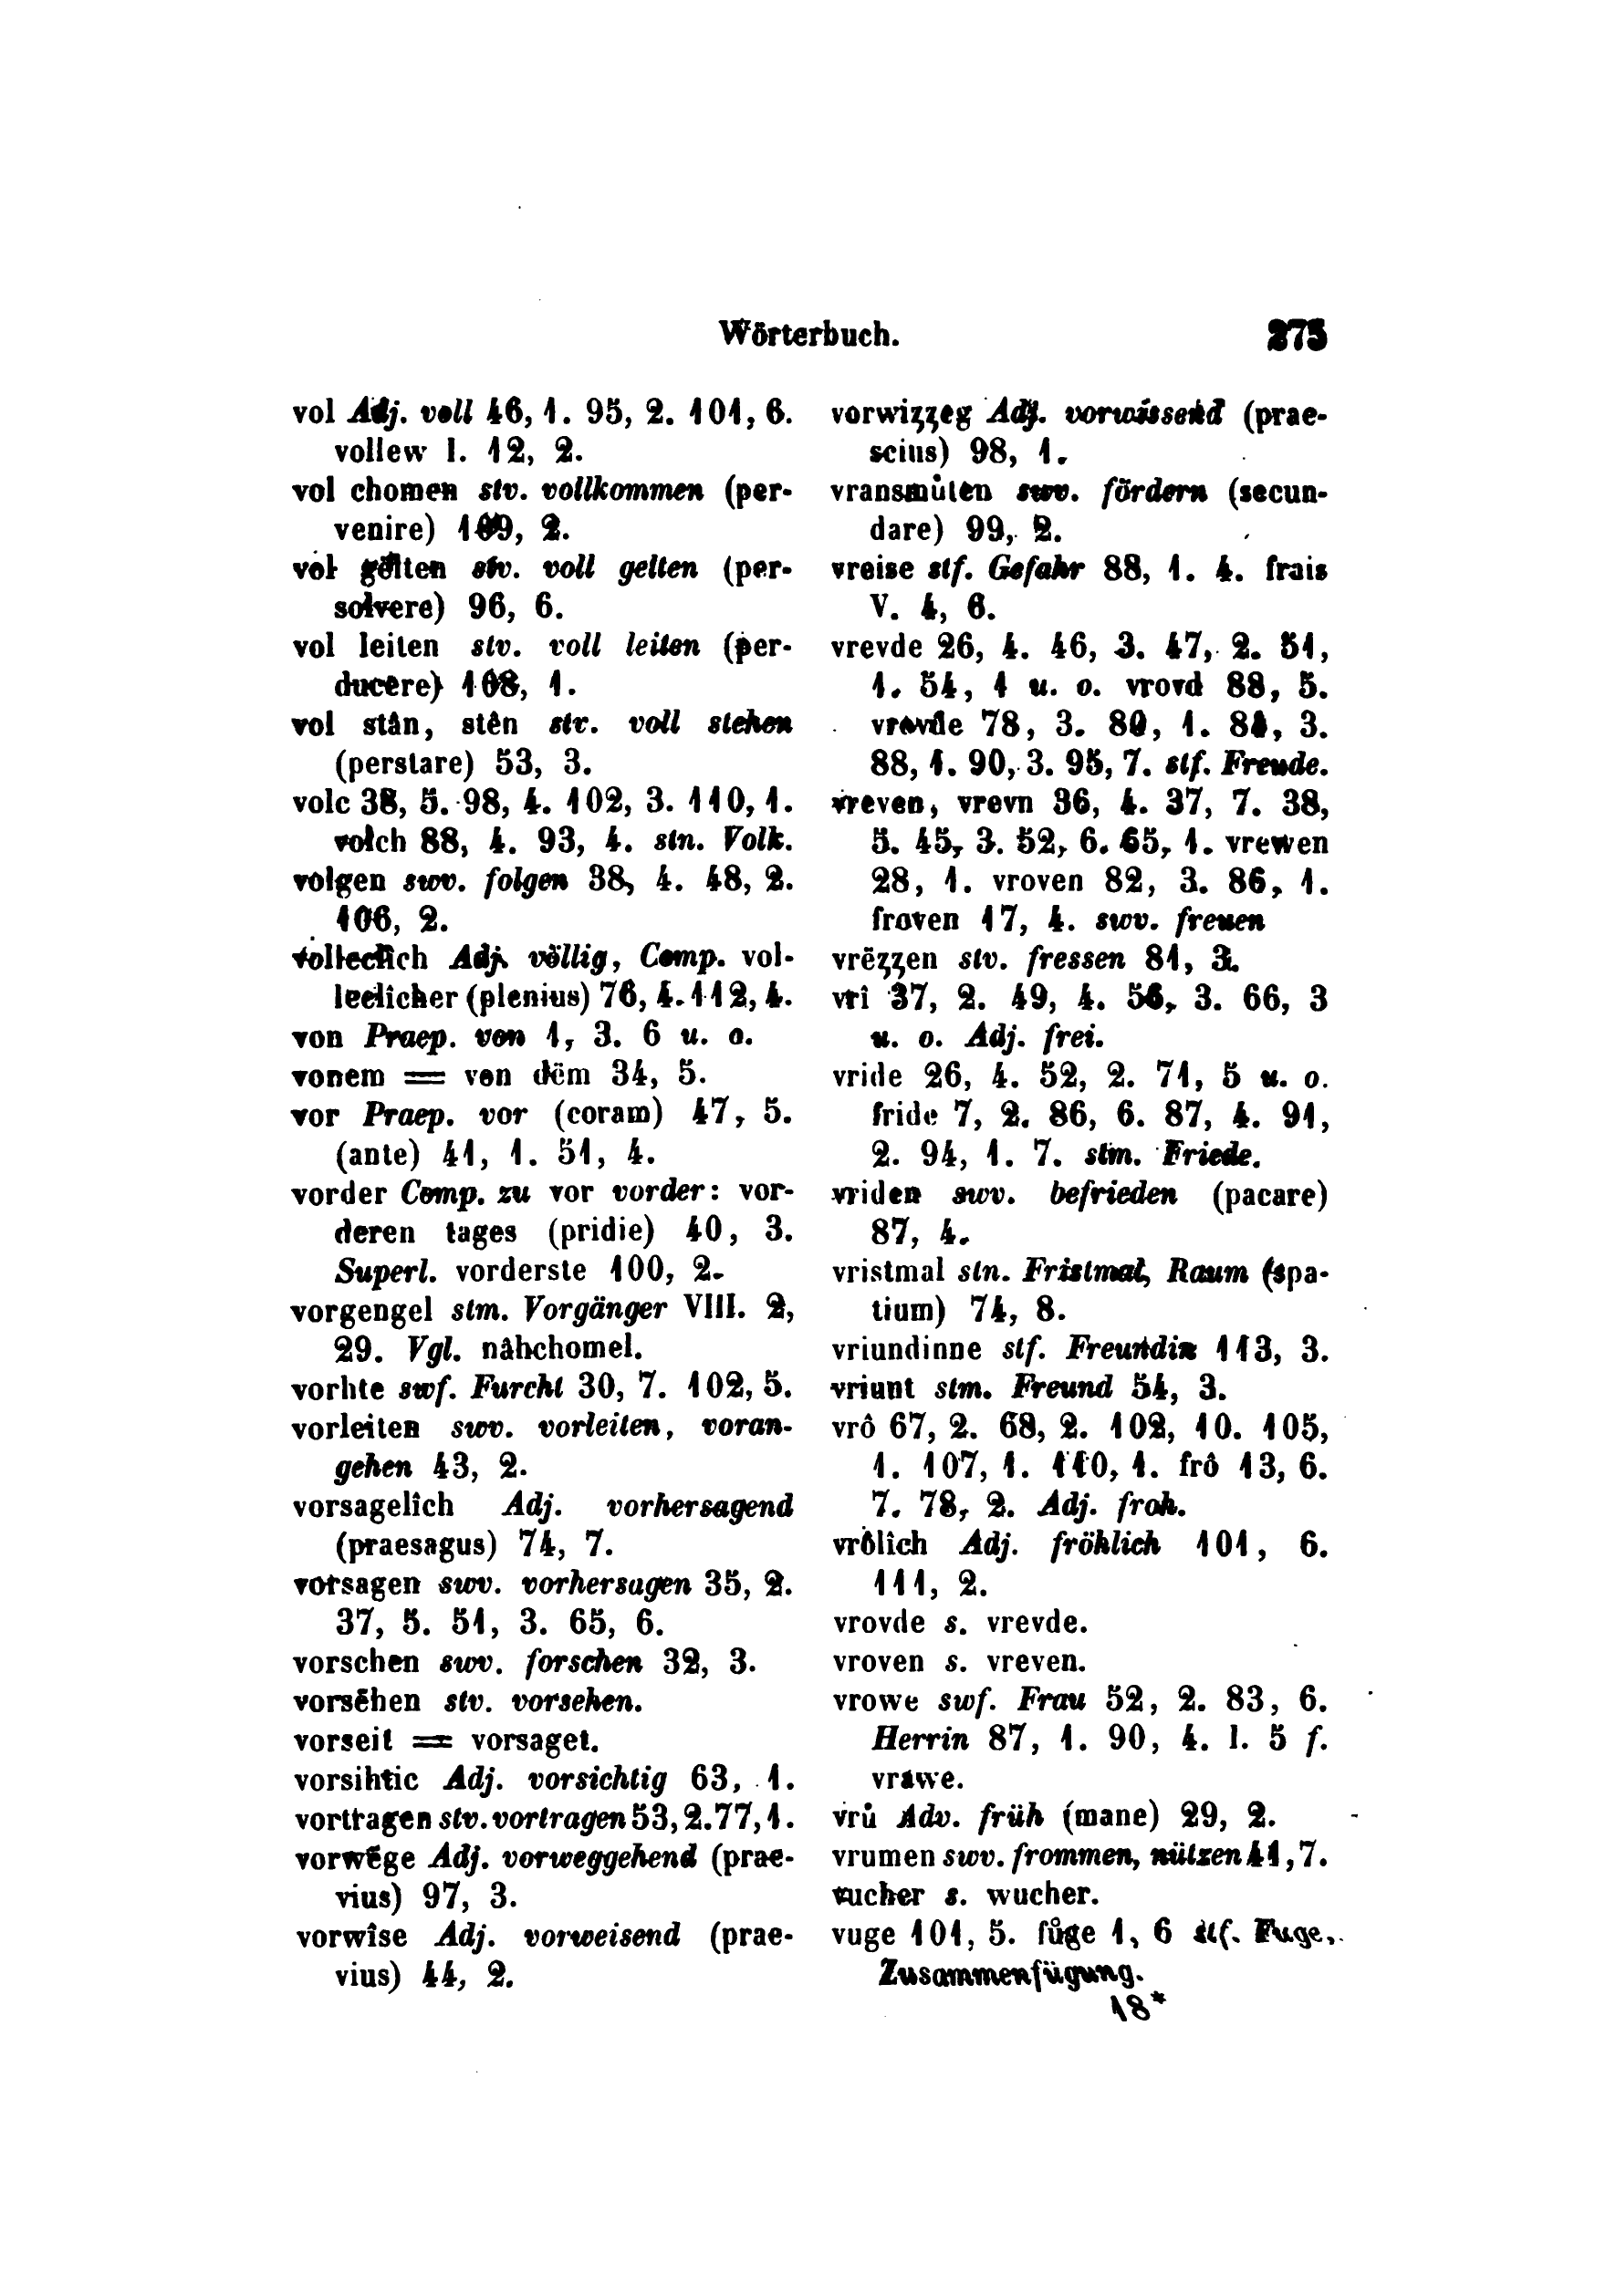 Wörterbuch. 275
vol Adj. voll 46, 1. 95, 2. 101, 6.
vollew l. 12, 2.
vol chomen stv. vollkommen (per-
venire) 109, 2.
vol gëlten stv. voll gelten (per-
solvere) 96, 6.
vol leiten stv. voll leiten (per-
ducere) 108, 1.
vol stân, stên stv. voll stehen
(perstare) 53, 3.
volc 38, 5. 98, 4. 102, 3. 110, 1.
volch 88, 4. 93, 4. stn. Volk.
volgen swv. folgen 38, 4. 48, 2.
106, 2.
volleclîch Adj. völlig, Comp. vol-
leclîcher (plenius) 76, 4. 112, 4.
von Praep. von 1, 3. 6 u. o.
vonem = von dëm 34, 5.
vor Praep. vor (coram) 47, 5.
(ante) 41, 1. 51, 4.
vorder Comp. zu vor vorder: vor-
deren tages (pridie) 40, 3.
Superl. vorderste 100, 2.
vorgengel stm. Vorgänger VIII. 2,
29. Vgl. nâhchomel.
vorhte swf. Furcht 30, 7. 102, 5.
vorleiten swv. vorleiten, voran-
gehen 43, 2.
vorsagelîch Adj. vorhersagend
(praesagus) 74, 7.
vorsagen swv. vorhersagen 35, 2.
37, 5. 51, 3. 65, 6.
vorschen swv. forschen 32, 3.
vorsëhen stv. vorsehen.
vorseit = vorsaget.
vorsihtic Adj. vorsichtig 63, 1.
vortragen stv. vortragen 53, 2. 77, 1.
vorwëge Adj. vorweggehend (prae-
vius) 97, 3.
vorwîse Adj. vorweisend (prae-
vius) 44, 2.
vorwiʒʒeg Adj. vorwissend (prae-
scius) 98, 1.
vransmůten swv. fördern (secun-
dare) 99, 2.
vreise stf. Gefahr 88, 1. 4. frais
V. 4, 6.
vrevde 26, 4. 46, 3. 47, 2. 51,
1. 54, 1 u. o. vrovd 88, 5.
vrovde 78, 3. 80, 1. 81, 3.
88, 1. 90, 3. 95, 7. stf. Freude.
vreven, vrevn 36, 4. 37, 7. 38,
5. 45, 3. 52, 6. 65, 1. vrewen
28, 1. vroven 82, 3. 86, 1.
froven 17, 4. swv. freuen
vrëʒʒen stv. fressen 81, 3.
vrî 37, 2. 49, 4. 56, 3. 66, 3
u. o. Adj. frei.
vride 26, 4. 52, 2. 71, 5 u. o.
fride 7, 2. 86, 6. 87, 4. 91,
2. 94, 1. 7. stm. Friede.
vriden swv. befrieden (pacare)
87, 4.
vristmal stn. Fristmal, Raum (spa-
tium) 74, 8.
vriundinne stf. Freundin 113, 3.
vriunt stm. Freund 54, 3.
vrô 67, 2. 68, 2. 102, 10. 105,
1. 107, 1. 110, 1. frô 13, 6.
7. 78, 2. Adj. froh.
vrôlîch Adj. fröhlich 101, 6.
111, 2.
vrovde s. vrevde.
vroven s. vreven.
vrowe swf. Frau 52, 2. 83, 6.
Herrin 87, 1. 90, 4. l. 5 f.
vrawe.
vrů Adv. früh (mane) 29, 2.
vrumen swv. frommen, nützen 41, 7.
vucher s. wucher.
vuge 101, 5. fůge 1, 6 stf. Fuge,
Zusammenfügung.
18*